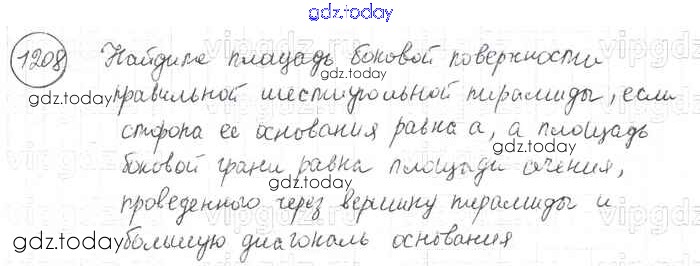 gdz.today
1208 Найдите площадь боковой поверхности
gdz.today правильной шестиугольной пирамиды, если
gdz.today
сторона ее основания равна a, а площадь
боковой грани равна площади сечения,
gdz.today
проведенного через вершину пирамиды и
gdz.today большую диагональ основания
gdz.today